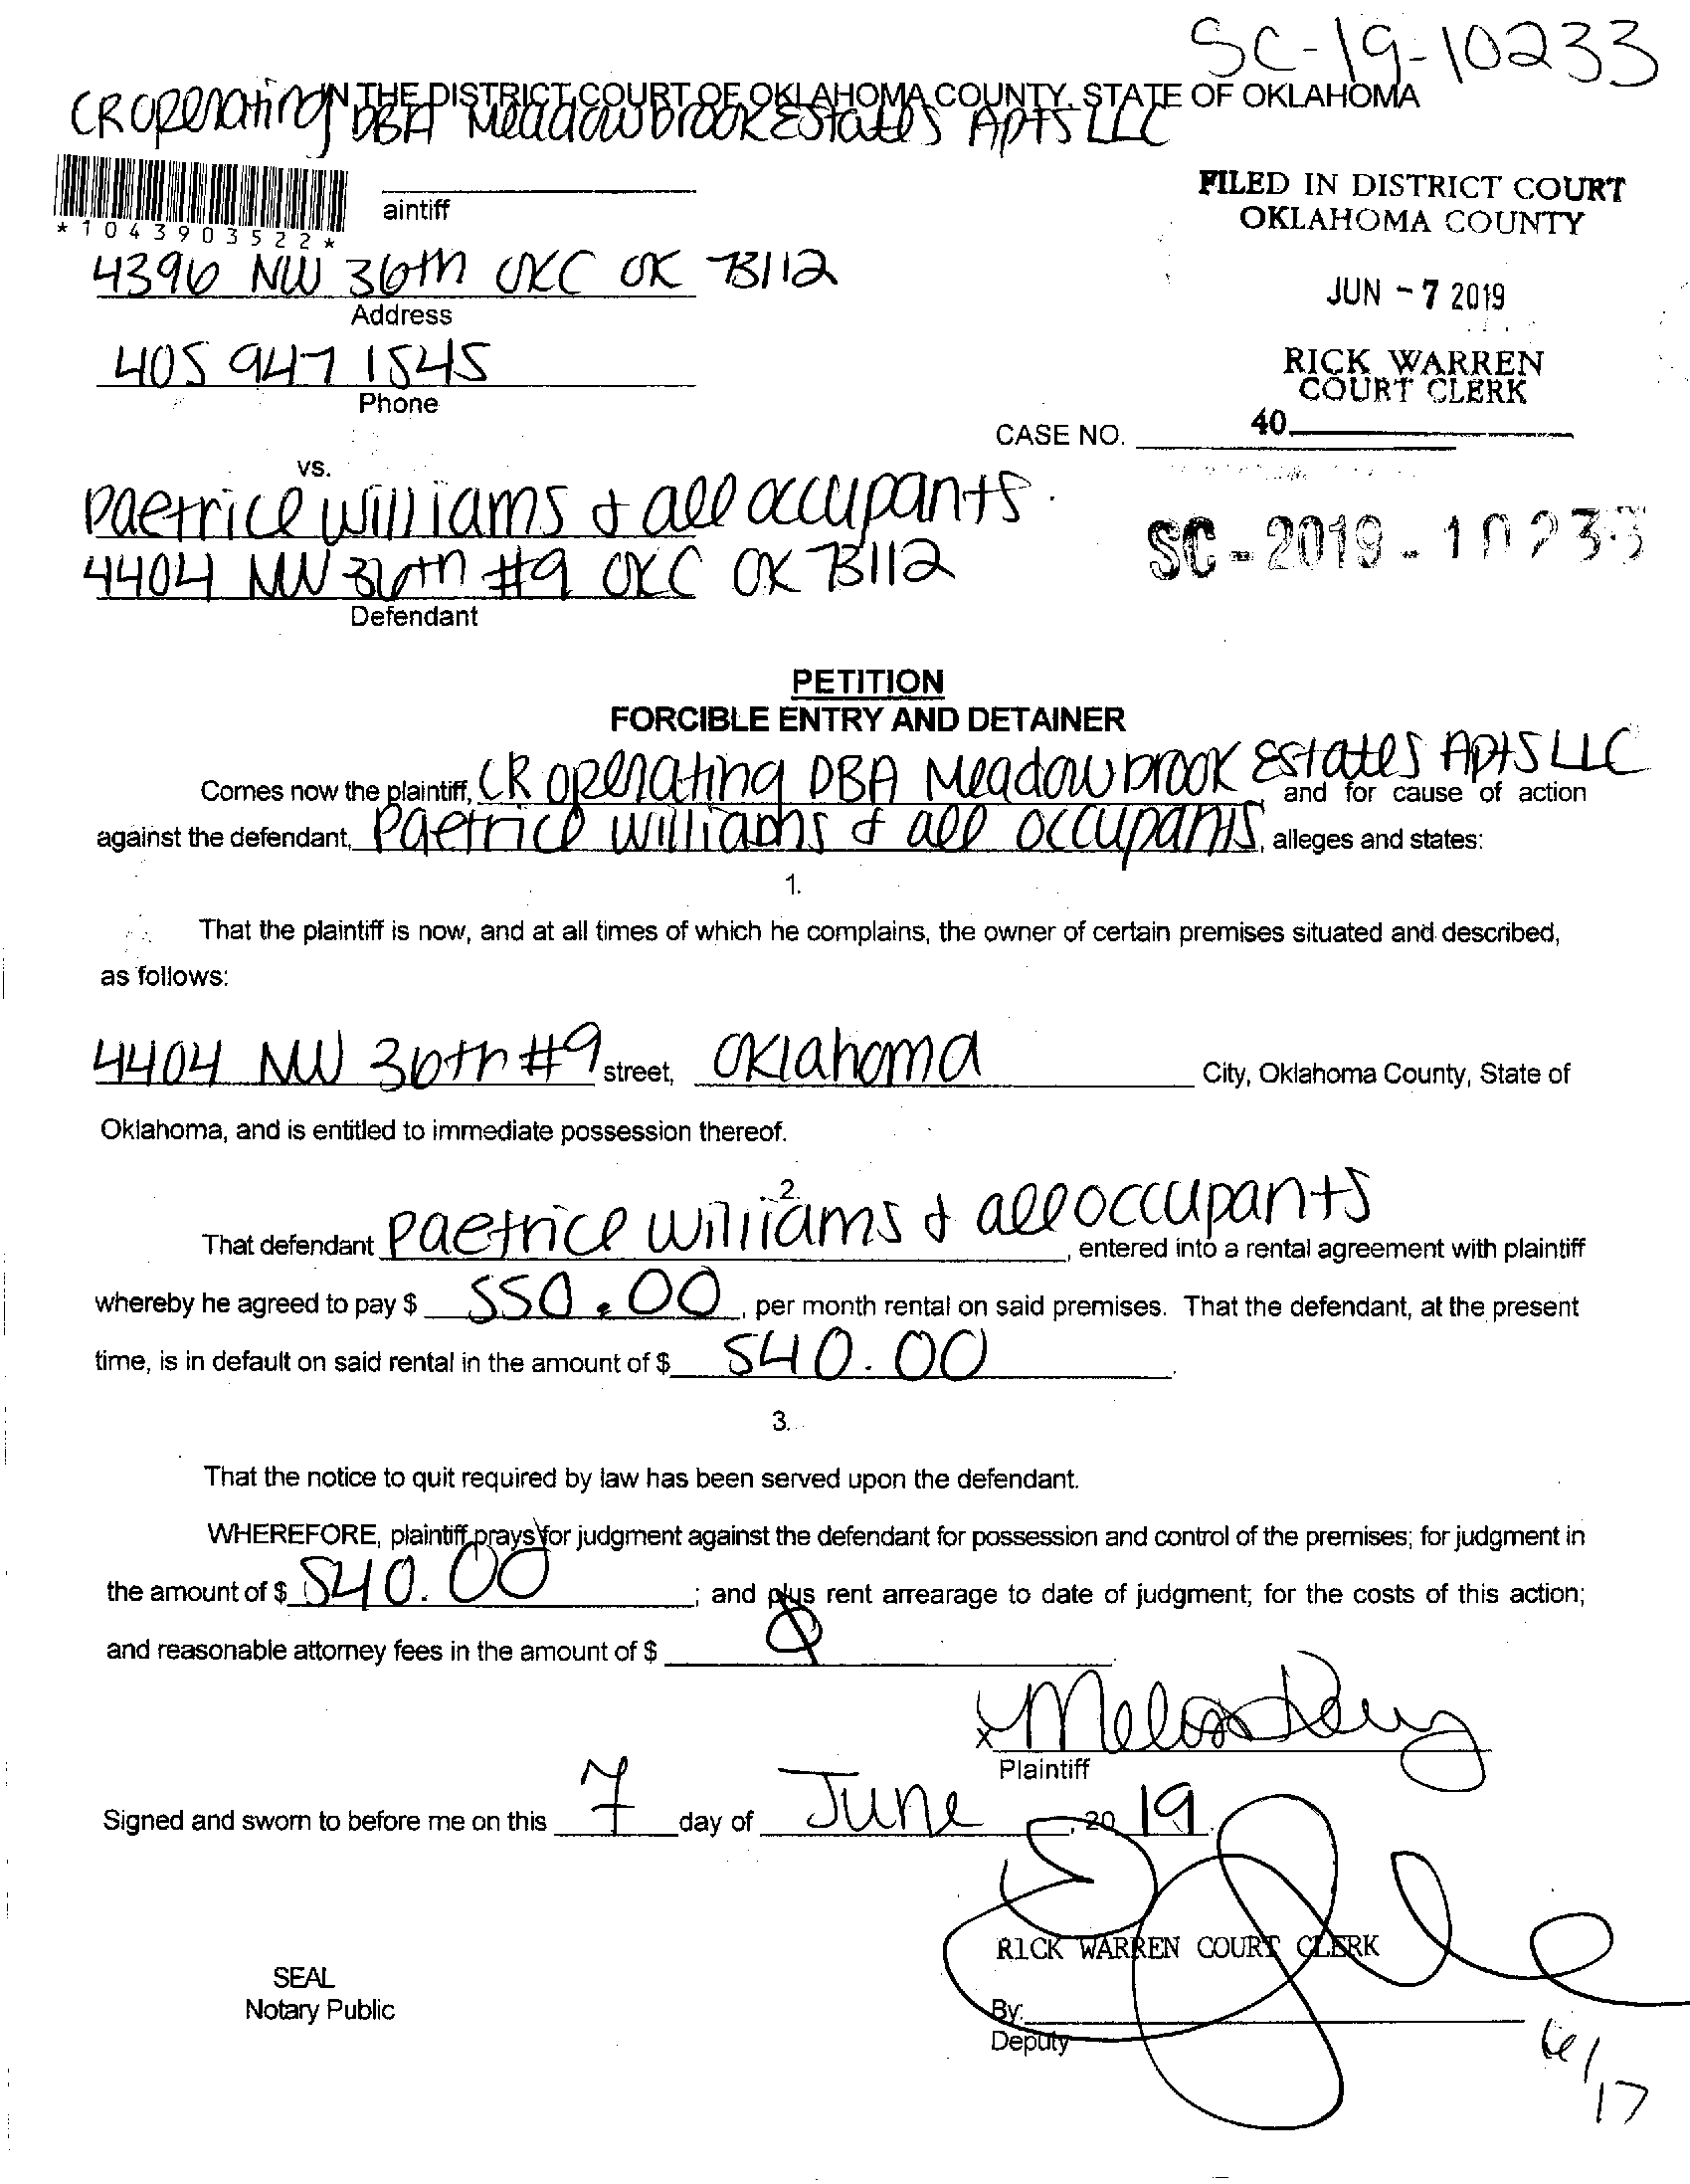 SC-19-10233
IN THE DISTRICT COURT OF OKLAHOMA COUNTY, STATE OF OKLAHOMA
CR Operating DBA Meadowbrook Estates Apts LLC
FILED IN DISTRICT COURT
OKLAHOMA COUNTY
aintiff
*1043903522*
4396 NW 36th OKC OK 73112
Address
JUN - 7 2019
405 947 1545
Phone
RICK WARREN
COURT CLERK
40
CASE NO.
vs.
Paetrice Williams & all occupants
SC - 2019 - 10233
4404 NW 36th #9 OKC OK 73112
Defendant
PETITION
FORCIBLE ENTRY AND DETAINER
Comes now the plaintiff, CR Operating DBA Meadowbrook Estates Apts LLC and for cause of action
against the defendant, Paetrice Williams & all occupants, alleges and states:
1.
That the plaintiff is now, and at all times of which he complains, the owner of certain premises situated and described,
as follows:
4404 NW 36th #9 street, Oklahoma City, Oklahoma County, State of
Oklahoma, and is entitled to immediate possession thereof.
2.
That defendant Paetrice Williams & all occupants, entered into a rental agreement with plaintiff
whereby he agreed to pay $ 550.00, per month rental on said premises. That the defendant, at the present
time, is in default on said rental in the amount of $ 540.00.
3.
That the notice to quit required by law has been served upon the defendant.
WHEREFORE, plaintiff prays for judgment against the defendant for possession and control of the premises; for judgment in
the amount of $ 540.00; and plus rent arrearage to date of judgment; for the costs of this action;
and reasonable attorney fees in the amount of $
x
Plaintiff
Signed and sworn to before me on this 7 day of June, 20 19.
RICK WARREN COURT CLERK
SEAL
Notary Public
By:
Deputy
6/17